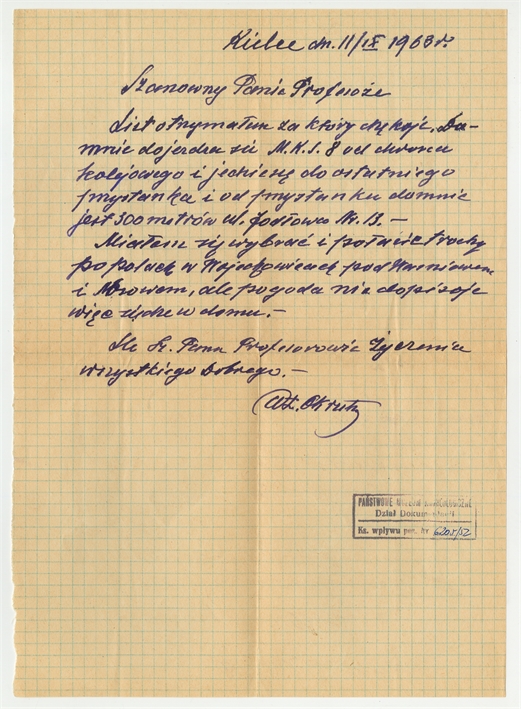 Kielce dn. 11/IX 1963 r.
Szanowny Panie Profesoże
List otrzymałem za który dziękuje, Do-
mnie dojezdza się M.K.S. 8 od dworca
kolejowego i jedzie się do ostatniego
przystanku i od przystanku domnie
jest 300 metrów ul. Jodłowa Nr. 13. -
Miałem się wybrać i połazić trochę
po polach w pod
i , ale pogoda nie dopisuje
więc siedze w domu. -
Dla Sz. Pana Profesorowie Życzenia
wszystkiego Dobrego. -
PAŃSTWOWE MUZEUM ARCHEOLOGICZNE
Dział Dokumentacji
Ks. wpływu poz. Nr 6205/52